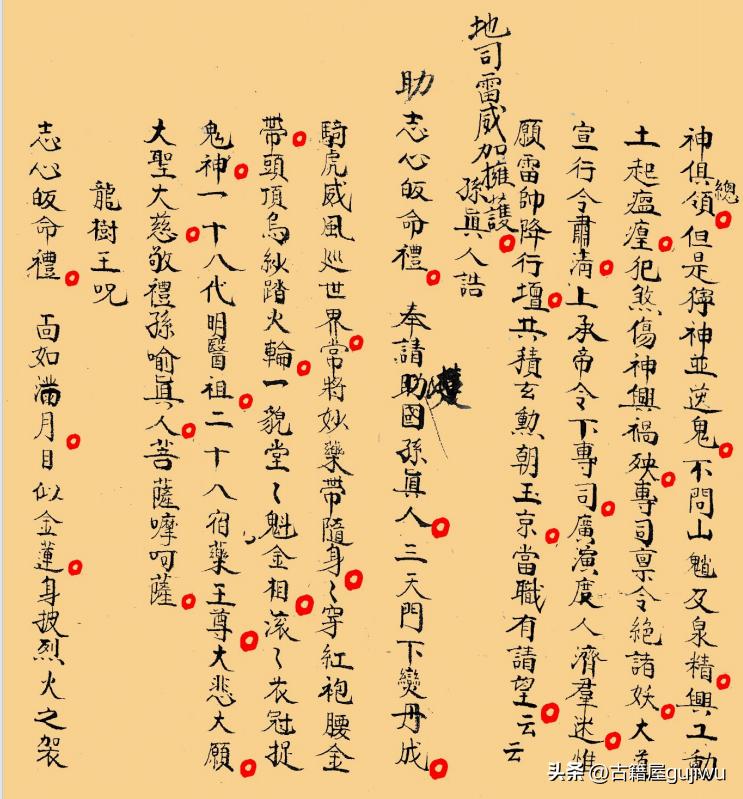 神俱領總但是獰神並送鬼不問山魈及泉精興工動
土起瘟瘽犯煞傷神興禍殃專司禀令絕諸妖大道
宣行令肅清上承帝令下專司廣演度人濟羣迷惟
願雷帥降行壇共積玄勲朝玉京當職有請望云云
地司雷威加擁護
孫眞人誥
助志心皈命禮 奉請助國孫眞人三天門下變丹成
騎虎威風巡世界常將妙藥帶隨身〻穿紅袍腰金
帶頭頂烏紗踏火輪一貌堂〻魁金相滚〻衣冠捉
鬼神一十八代明醫祖二十八宿藥王尊大悲大願
大聖大慈敬禮孫喻眞人菩薩摩呵薩
龍樹王咒
志心皈命禮 面如滿月目似金蓮身披烈火之袈
头条 @古籍屋gujiwu